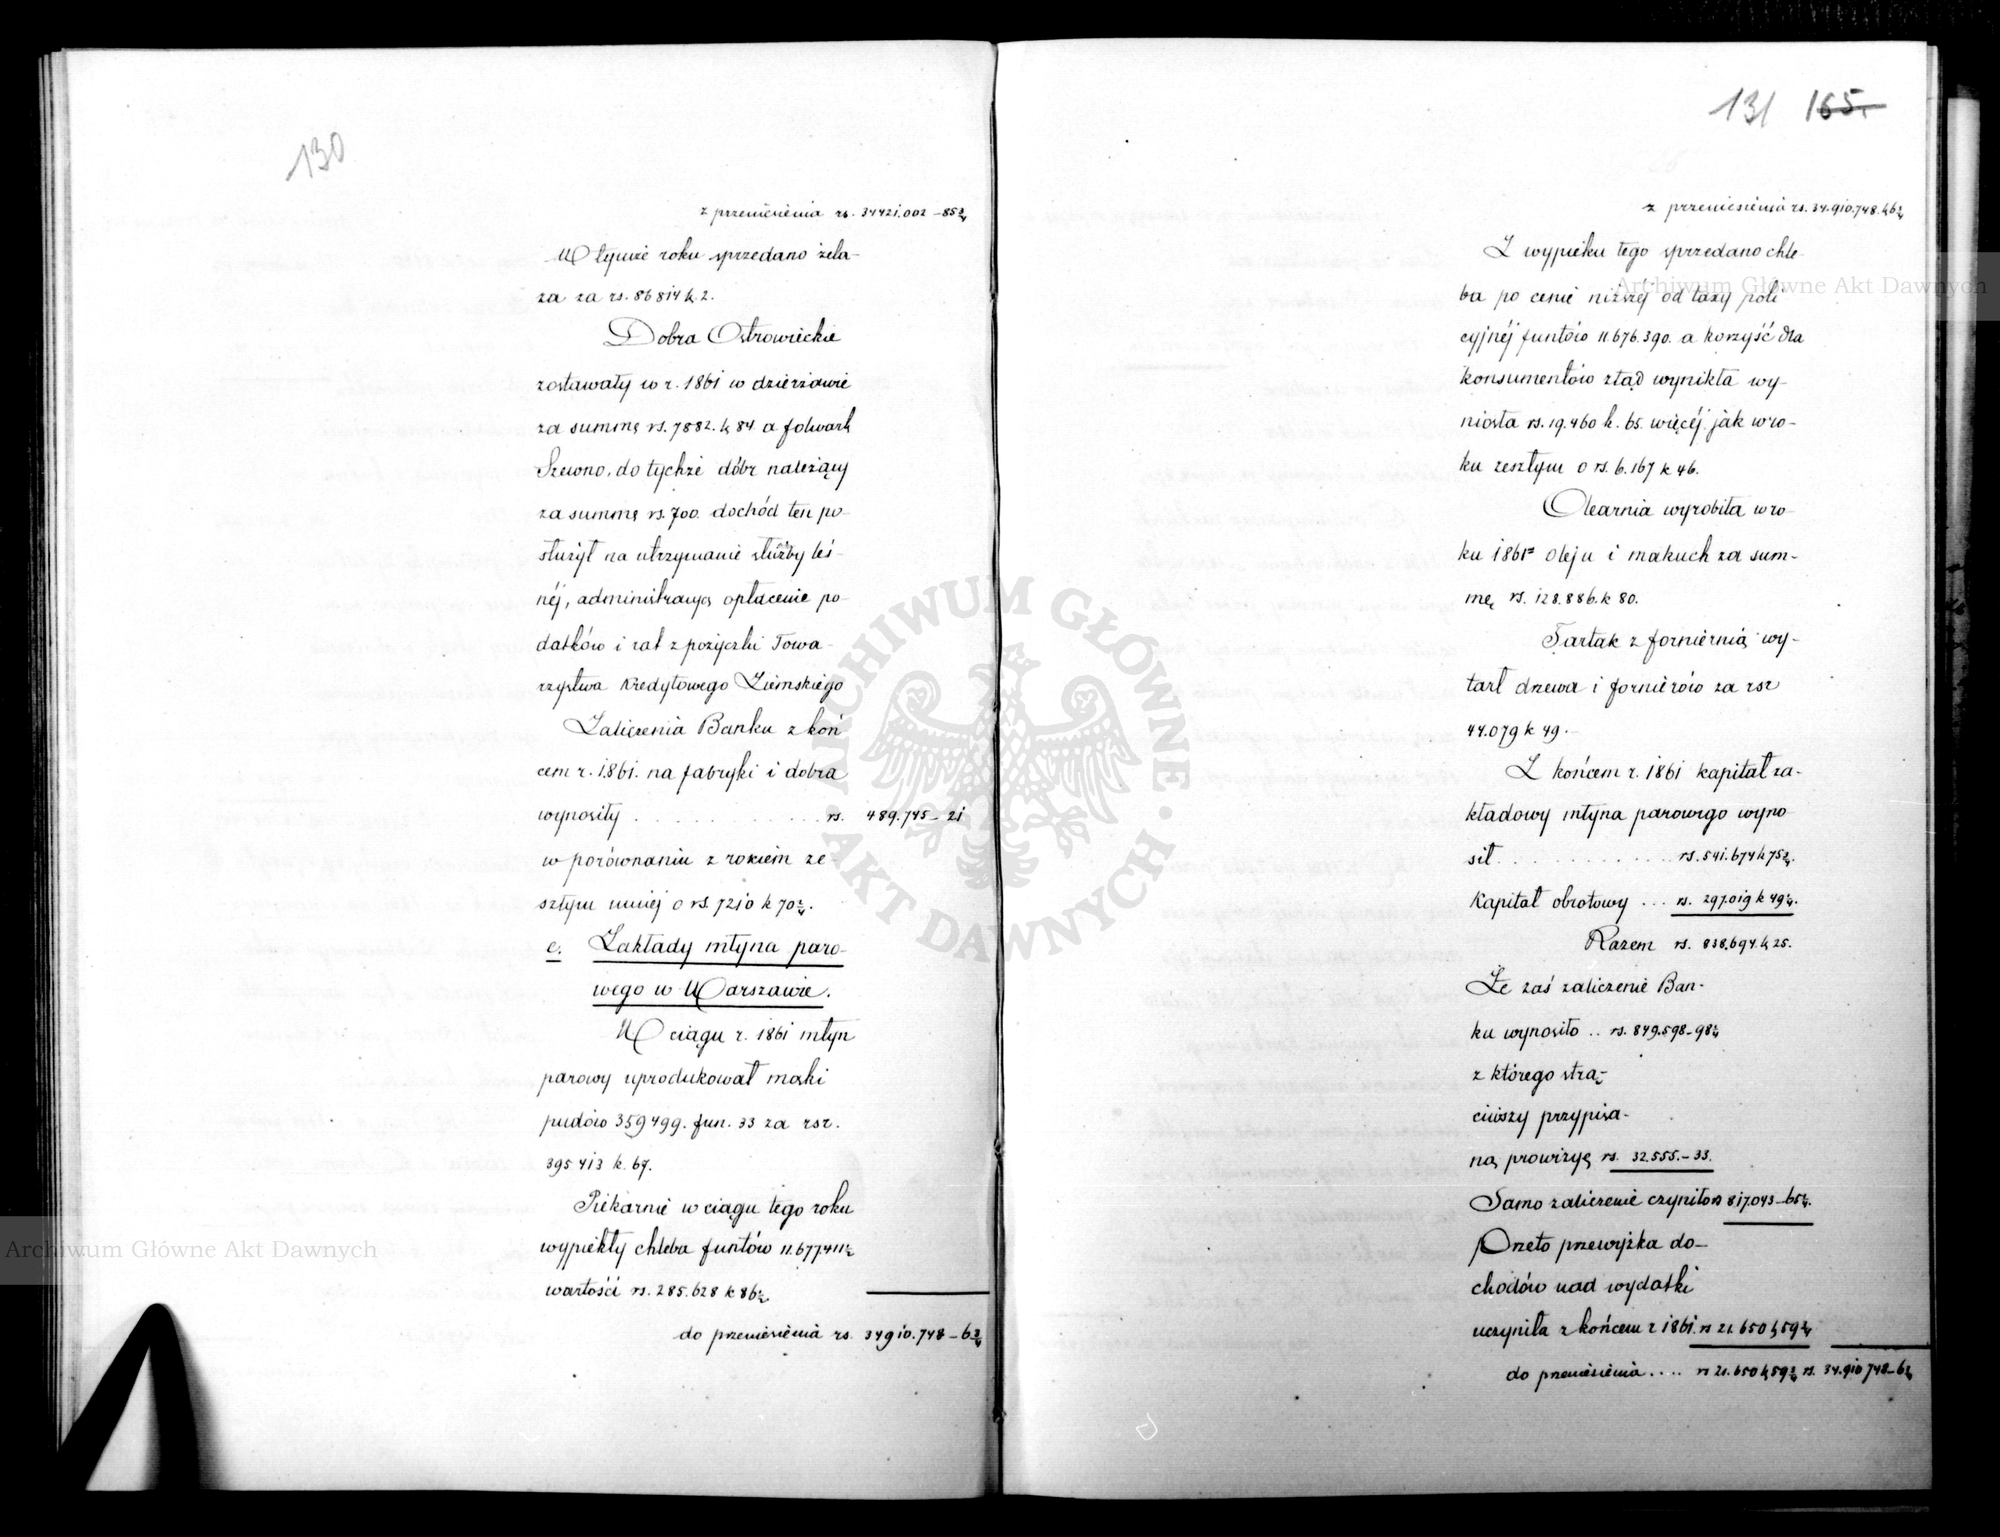 130
z przeniesienia rs. 34421.002 - 85 3/4
W tymże roku sprzedano żela-
za za rs. 86814 k. 2.
Dobra Ostrowieckie
zostawały w r. 1861 w dzierżawie
za summę rs. 7882. k 84 a folwark
Szewno, do tychże dóbr należący
za summę rs. 700. dochód ten po-
służył na utrzymanie służby leś-
néj, administracyą opłacenie po-
datków i rat z pożyczki Towa-
rzystwa Kredytowego Ziemskiego
Zaliczenia Banku z koń
cem r. 1861. na fabryki i dobra
wynosiły . . . . . . . . . . . rs. 489.745 - 21
w porównaniu z rokiem ze-
szłym mniéj o rs. 7210 k 70 1/2.
e. Zakłady młyna paro-
wego w Warszawie.
W ciągu r. 1861 młyn
parowy uprodukował mąki
pudów 359499. fun. 33 za rsr.
395413 k. 67.
Piekarnie w ciągu tego roku
wypiekły chleba funtów 11.677.411 1/2
wartości rs. 285.628 k 86 1/2
do przeniesienia rs. 34910.748 - 6 3/4
131 165.
z przeniesienia rs. 34.910.748. k 6 3/4
Z wypieku tego sprzedano chle-
ba po cenie niższéj od taxy poli
cyjnéj funtów 11.676.390. a korzyść dla
konsumentów ztąd wynikła wy-
niosła rs. 19.460 k. 65. więcéj jak w ro-
ku zeszłym o rs. 6.167 k 46.
Olearnia wyrobiła w ro-
ku 1861 oleju i makuch za sum-
mę rs. 128.886. k 80.
Tartak z forniernią wy-
tarł drzewa i fornierów za rsr
44.079 k 49.
Z końcem r. 1861 kapitał za-
kładowy młyna parowego wyno
sił . . . . . . . . . . . rs. 541.674 k 75 3/4.
Kapitał obrotowy ... rs. 297.019 k 49 1/4.
Razem rs. 838.694. k 25.
Że zaś zaliczenie Ban-
ku wynosiło .. rs. 849.598 - 98 1/4
z którego strą-
ciwszy przypisa-
ną prowizyę rs. 32.555. - 33.
Samo zaliczenie czyniło rs 817.043 - 65 1/4.
Przeto przewyżka do-
chodów nad wydatki
uczyniła z końcem r 1861. rs 21.650 k 59 3/4
do przeniesienia .... rs 21.650 k 59 3/4 rs. 34.910 748 - 6 3/4
Archiwum Główne Akt Dawnych
Archiwum Główne Akt Dawnych
ARCHIWUM GŁÓWNE · AKT DAWNYCH ·